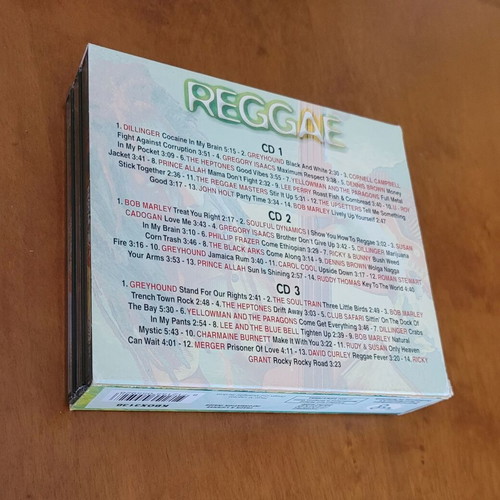 REGGAE
CD 1
1. DILLINGER Cocaine In My Brain 5:15 - 2. GREYHOUND Black And White 2:30 - 3. CORNELL CAMPBELL
Fight Against Corruption 3:51 - 4. GREGORY ISAACS Maximum Respect 3:38 - 5. DENNIS BROWN Money
In My Pocket 3:09 - 6. THE HEPTONES Good Vibes 3:55 - 7. YELLOWMAN AND THE PARAGONS Full Metal
Jacket 3:41 - 8. PRINCE ALLAH Mama Don't Fight 2:32 - 9. LEE PERRY Roast Fish & Cornbread 2:45 - 10. U-ROY
Stick Together 2:36 - 11. THE REGGAE MASTERS Stir It Up 5:31 - 12. THE UPSETTERS Tell Me Something
Good 3:17 - 13. JOHN HOLT Party Time 3:34 - 14. BOB MARLEY Lively Up Yourself 2:47
CD 2
1. BOB MARLEY Treat You Right 2:17 - 2. SOULFUL DYNAMICS I Show You How To Reggae 3:02 - 3. SUSAN
CADOGAN Love Me 3:43 - 4. GREGORY ISAACS Brother Don't Give Up 3:42 - 5. DILLINGER Marijuana
In My Brain 3:10 - 6. PHILLIP FRAZER Come Ethiopian 3:29 - 7. RICKY & BUNNY Bush Weed
Corn Trash 3:46 - 8. THE BLACK ARKS Come Along 3:14 - 9. DENNIS BROWN Wolga Nagga
Fire 3:16 - 10. GREYHOUND Jamaica Rum 3:40 - 11. CAROL COOL Upside Down 3:17 - 12. ROMAN STEWART
Your Arms 3:53 - 13. PRINCE ALLAH Sun Is Shining 2:57 - 14. RUDDY THOMAS Key To The World 4:40
CD 3
1. GREYHOUND Stand For Our Rights 2:41 - 2. THE SOUL TRAIN Three Little Birds 2:48 - 3. BOB MARLEY
Trench Town Rock 2:48 - 4. THE HEPTONES Drift Away 3:03 - 5. CLUB SAFARI Sittin' On The Dock Of
The Bay 5:30 - 6. YELLOWMAN AND THE PARAGONS Come Get Everything 3:46 - 7. DILLINGER Crabs
In My Pants 2:54 - 8. LEE AND THE BLUE BELL Tighten Up 2:39 - 9. BOB MARLEY Natural
Mystic 5:43 - 10. CHARMAINE BURNETT Make It With You 3:22 - 11. RUDY & SUSAN Only Heaven
Can Wait 4:01 - 12. MERGER Prisoner Of Love 4:11 - 13. DAVID CURLEY Reggae Fever 3:20 - 14. RICKY
GRANT Rocky Rocky Road 3:23
KBOX3130